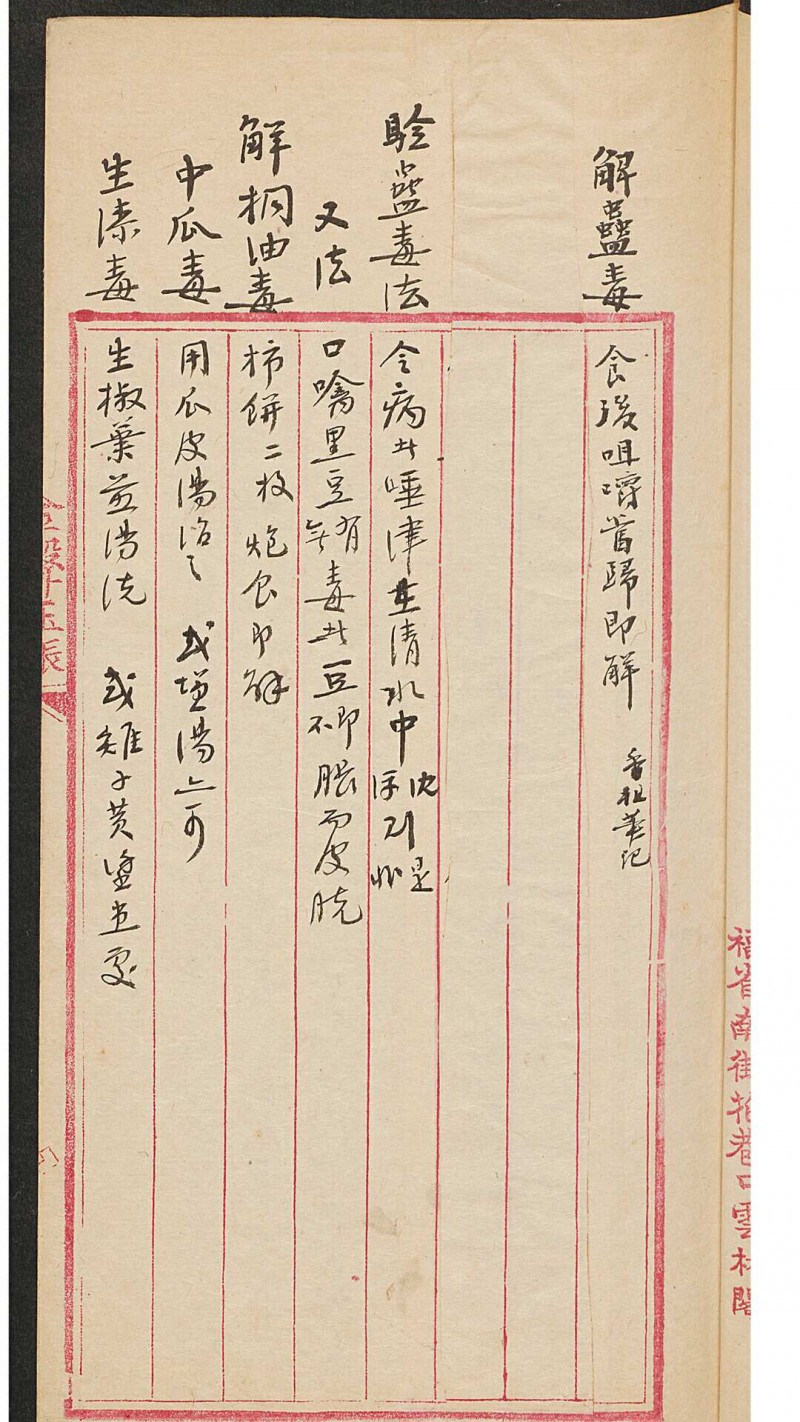 解蠱毒
食後咀嚼當歸即解 香祖筆記
驗蠱毒法
令病者唾津在清水中沈則是浮則非
又法
口噙黑豆有毒者豆即脹而皮脫無毒者豆不脹
解桐油毒
柿餅二枚炮食即解
中瓜毒
用瓜皮湯治之 或塩湯亦可
生漆毒
生椒葉煎湯洗 或雞子黃塗患處
福省南街 巷口雲林閣